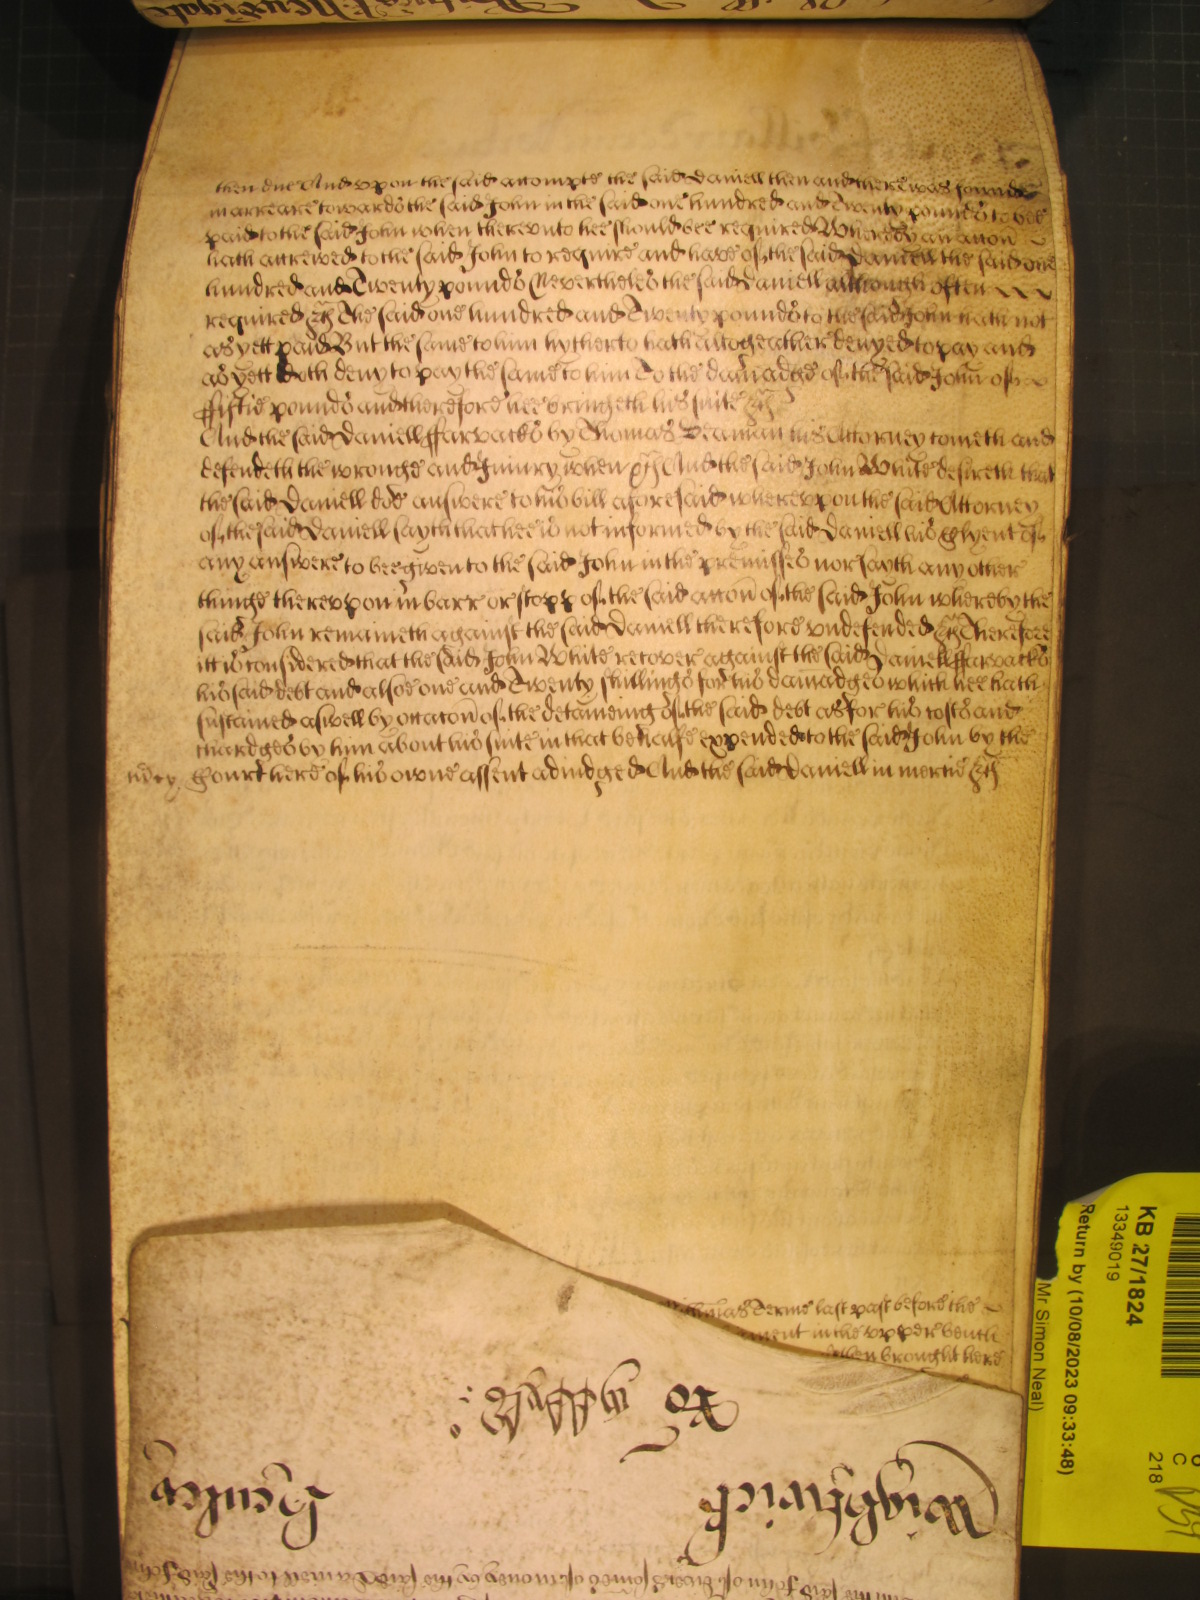 then due And vpon the said accompte the said Daniell then and there was founde
in arreare towards the said John in the said one hundred and Twenty pounds to bee
paid to the said John when therevnto hee should bee required Whereby an accon
hath accrewed to the said John to require and have of the said Daniell the said one
hundred and Twenty pounds Neverthelesse the said Daniell although often
required &c The said one hundred and Twenty pounds to the said John hath not
as yett paid But the same to him hytherto hath altogeather denyed to pay and
as yett doth deny to pay the same to him To the damadge of the said John of
ffiftie pounds and therefore hee bringeth his suite &c
And the said Daniell ffarvacks by Thomas Yeaman his Attorney cometh and
defendeth the wronge and Injury when &c And the said John White desireth that
the said Daniell doe answere to his bill aforesaid wherevpon the said Attorney
of the said Daniell sayth that hee is not informed by the said Daniell his Clyent of
any answere to bee given to the said John in the premisses nor sayth any other
thinge therevpon in barr or stopp of the said accon of the said John whereby the
said John remaineth against the said Daniell therefore vndefended &c Therefore
itt is considered that the said John White recover against the said Daniell ffarvacks
his said debt and alsoe one and Twenty shillings for his damadges which hee hath
sustained aswell by occacon of the detaineing of the said debt as for his costs and
chardges by him about his suite in that behalfe expended to the said John by the
Court here of his owne assent adiudged And the said Daniell in mercie &c
Terme last past before the
in the vpper bench
then brought here
Wightwick
Henley
KB 27/1824
13349019
Return by (10/08/2023 09:33:48)
Mr Simon Neal)
C
218